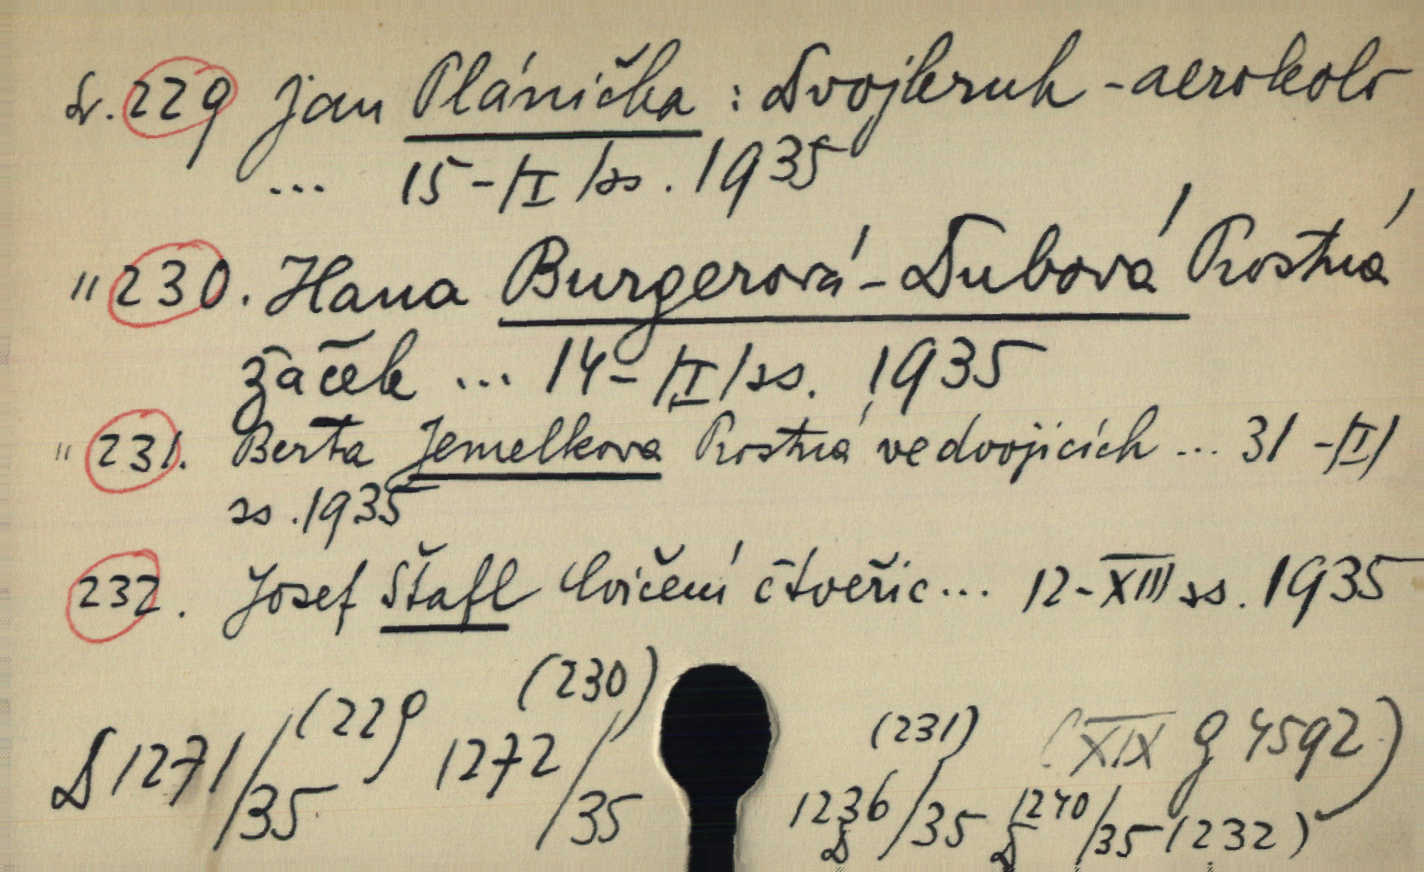 Sv. 229 Jan Plánička : Dvojkruh - aerokolo
... 15-/I/ ss. 1935
" 230. Hana Burgerová-Dubová Prostná
žaček ... 14-/I/ ss. 1935
" 231. Berta Jemelkova Prostná ve dvojicích ... 31 -/I/
ss. 1935
232. Josef Štafl Cvičení čtveřic ... 12-XIII ss. 1935
(229 (230)
D 1271/35 1272/35
(231) (XIX g 4592)
1236/35 D 1240/35 (232)
D